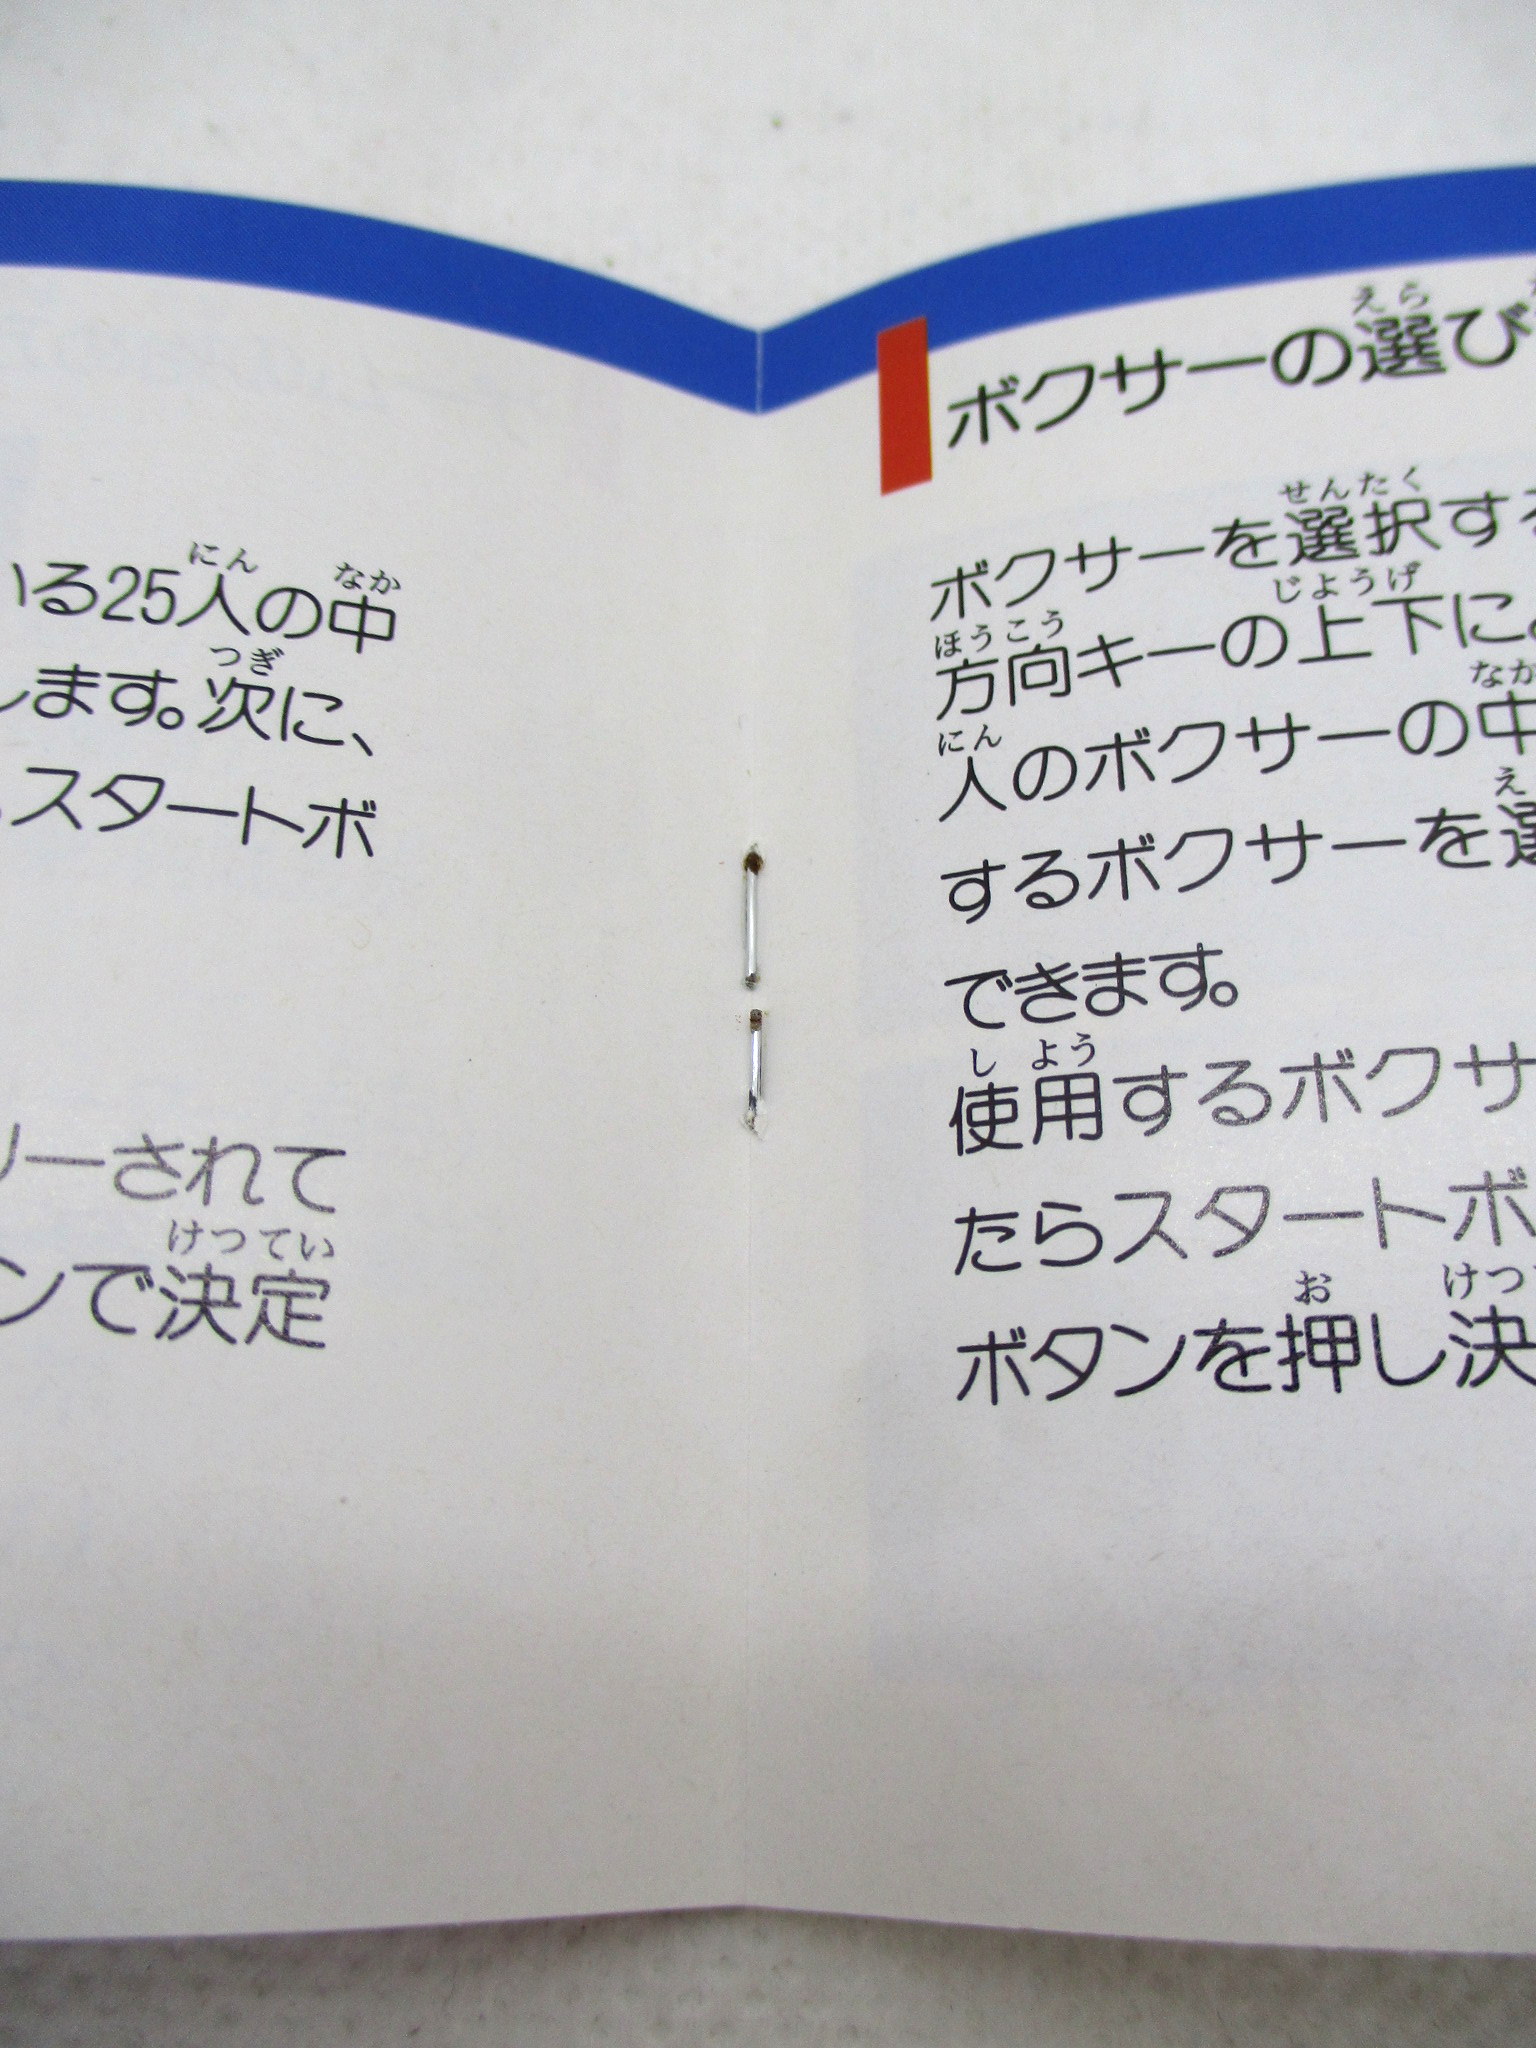 いる25人の中
にん なか
します。次に、
つぎ
スタートボ
リーされて
ンで決定
けってい
ボクサーの選び
えら
ボクサーを選択する
せんたく
方向キーの上下に
ほうこう じょうげ
人のボクサーの中
にん なか
するボクサーを選
え
できます。
使用するボクサ
し よう
たらスタートボ
ボタンを押し決
お けつ